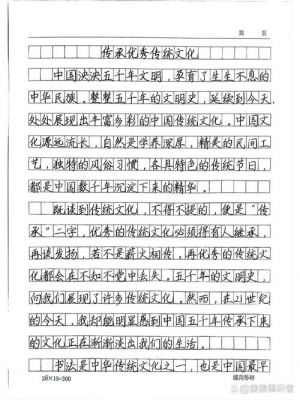 第 页
传承优秀传统文化
中国泱泱五千年文明，孕育了生生不息的
中华民族。整整五千年的文明史，延续到今天，
处处展现出丰富多彩的中国传统文化。中国文
化源远流长，自然是学养深厚，精美的民间工
艺，独特的风俗习惯，各具特色的传统节日，
都是中国数千年沉淀下来的精华。
既谈到传统文化，不得不提的，便是“传
承”二字，优秀的传统文化必须得有人继承，
再谈发扬，若不是薪火相传，再优秀的传统文
化都会在不知不觉中丢失。五千年的文明史，
向我们展现了许多传统文化。然而，在21世纪
的今天。我却能明显感到中国五千年传承下来
的文化正在渐渐淡出我们的生活。
书法是中华传统文化之一，也是中国最早
20×15=300